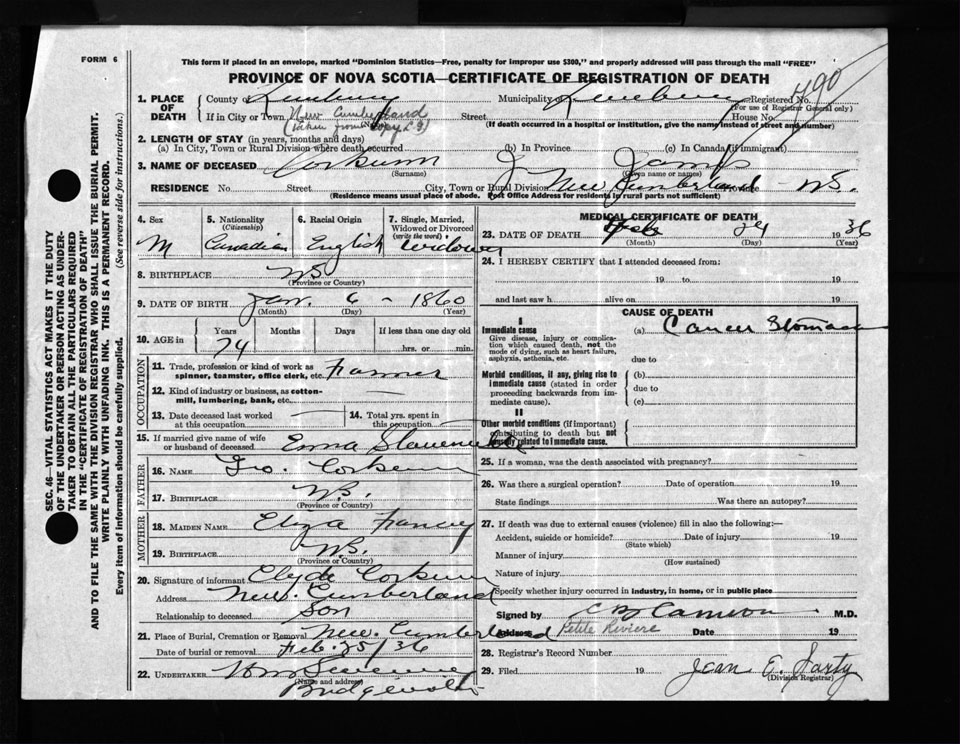 FORM 6
This form if placed in an envelope, marked "Dominion Statistics—Free, penalty for improper use $300," and properly addressed will pass through the mail "FREE"
PROVINCE OF NOVA SCOTIA—CERTIFICATE OF REGISTRATION OF DEATH
490
1. PLACE OF DEATH County of Lunenburg Municipality of Lunenburg Registered No.
(For use of Registrar General only)
If in City or Town New Cumberland Street House No.
(taken from copy
(If death occurred in a hospital or institution, give the name instead of street and number)
2. LENGTH OF STAY (in years, months and days)
(a) In City, Town or Rural Division where death occurred (b) In Province (c) In Canada (if immigrant)
3. NAME OF DECEASED Corkum J James
(Surname) (Given name or names)
RESIDENCE No. Street City, Town or Rural Division New Cumberland Province NS.
(Residence means usual place of abode. Post Office Address for residents in rural parts not sufficient)
4. Sex 5. Nationality (Citizenship) 6. Racial Origin 7. Single, Married, Widowed or Divorced (write the word)
M Canadian English Widower
8. BIRTHPLACE NS
(Province or Country)
9. DATE OF BIRTH Jan. 6 - 1860
(Month) (Day) (Year)
10. AGE in Years Months Days If less than one day old
74 hrs. or min.
OCCUPATION
11. Trade, profession or kind of work as spinner, teamster, office clerk, etc. Farmer
12. Kind of industry or business, as cotton-mill, lumbering, bank, etc.
13. Date deceased last worked at this occupation 14. Total yrs. spent in this occupation
15. If married give name of wife or husband of deceased Emma
FATHER
16. NAME Geo. Corkum
17. BIRTHPLACE N.S.
(Province or Country)
MOTHER
18. MAIDEN NAME Eliza Francy
19. BIRTHPLACE N.S.
(Province or Country)
20. Signature of informant Clyde Corkum
Address New Cumberland
Relationship to deceased Son
21. Place of Burial, Cremation or Removal New Cumberland
Date of burial or removal Feb. 25/36
22. UNDERTAKER
(Name and address)
MEDICAL CERTIFICATE OF DEATH
23. DATE OF DEATH Feb 24 1936
(Month) (Day) (Year)
24. I HEREBY CERTIFY that I attended deceased from:
19 to 19
and last saw h alive on 19
CAUSE OF DEATH
I
Immediate cause (a) Cancer Stomach
Give disease, injury or complication which caused death, not the mode of dying, such as heart failure, asphyxia, asthenia, etc.
due to
Morbid conditions, if any, giving rise to immediate cause (stated in order proceeding backwards from immediate cause).
(b)
due to
(c)
II
Other morbid conditions (if important) contributing to death but not causally related to immediate cause.
25. If a woman, was the death associated with pregnancy?
26. Was there a surgical operation? Date of operation 19
State findings Was there an autopsy?
27. If death was due to external causes (violence) fill in also the following:—
Accident, suicide or homicide? Date of injury 19
(State which)
Manner of injury
(How sustained)
Nature of injury
Specify whether injury occurred in industry, in home, or in public place
Signed by Cameron M.D.
Address Petite Riviere Date 19
28. Registrar's Record Number
29. Filed 19 Jean E. Sarty
(Division Registrar)
SEC. 46—VITAL STATISTICS ACT MAKES IT THE DUTY
OF THE UNDERTAKER OR PERSON ACTING AS UNDER-
TAKER TO OBTAIN ALL THE PARTICULARS REQUIRED
IN THE "CERTIFICATE OF REGISTRATION OF DEATH"
AND TO FILE THE SAME WITH THE DIVISION REGISTRAR WHO SHALL ISSUE THE BURIAL PERMIT.
WRITE PLAINLY WITH UNFADING INK. THIS IS A PERMANENT RECORD.
Every item of information should be carefully supplied. (See reverse side for instructions.)